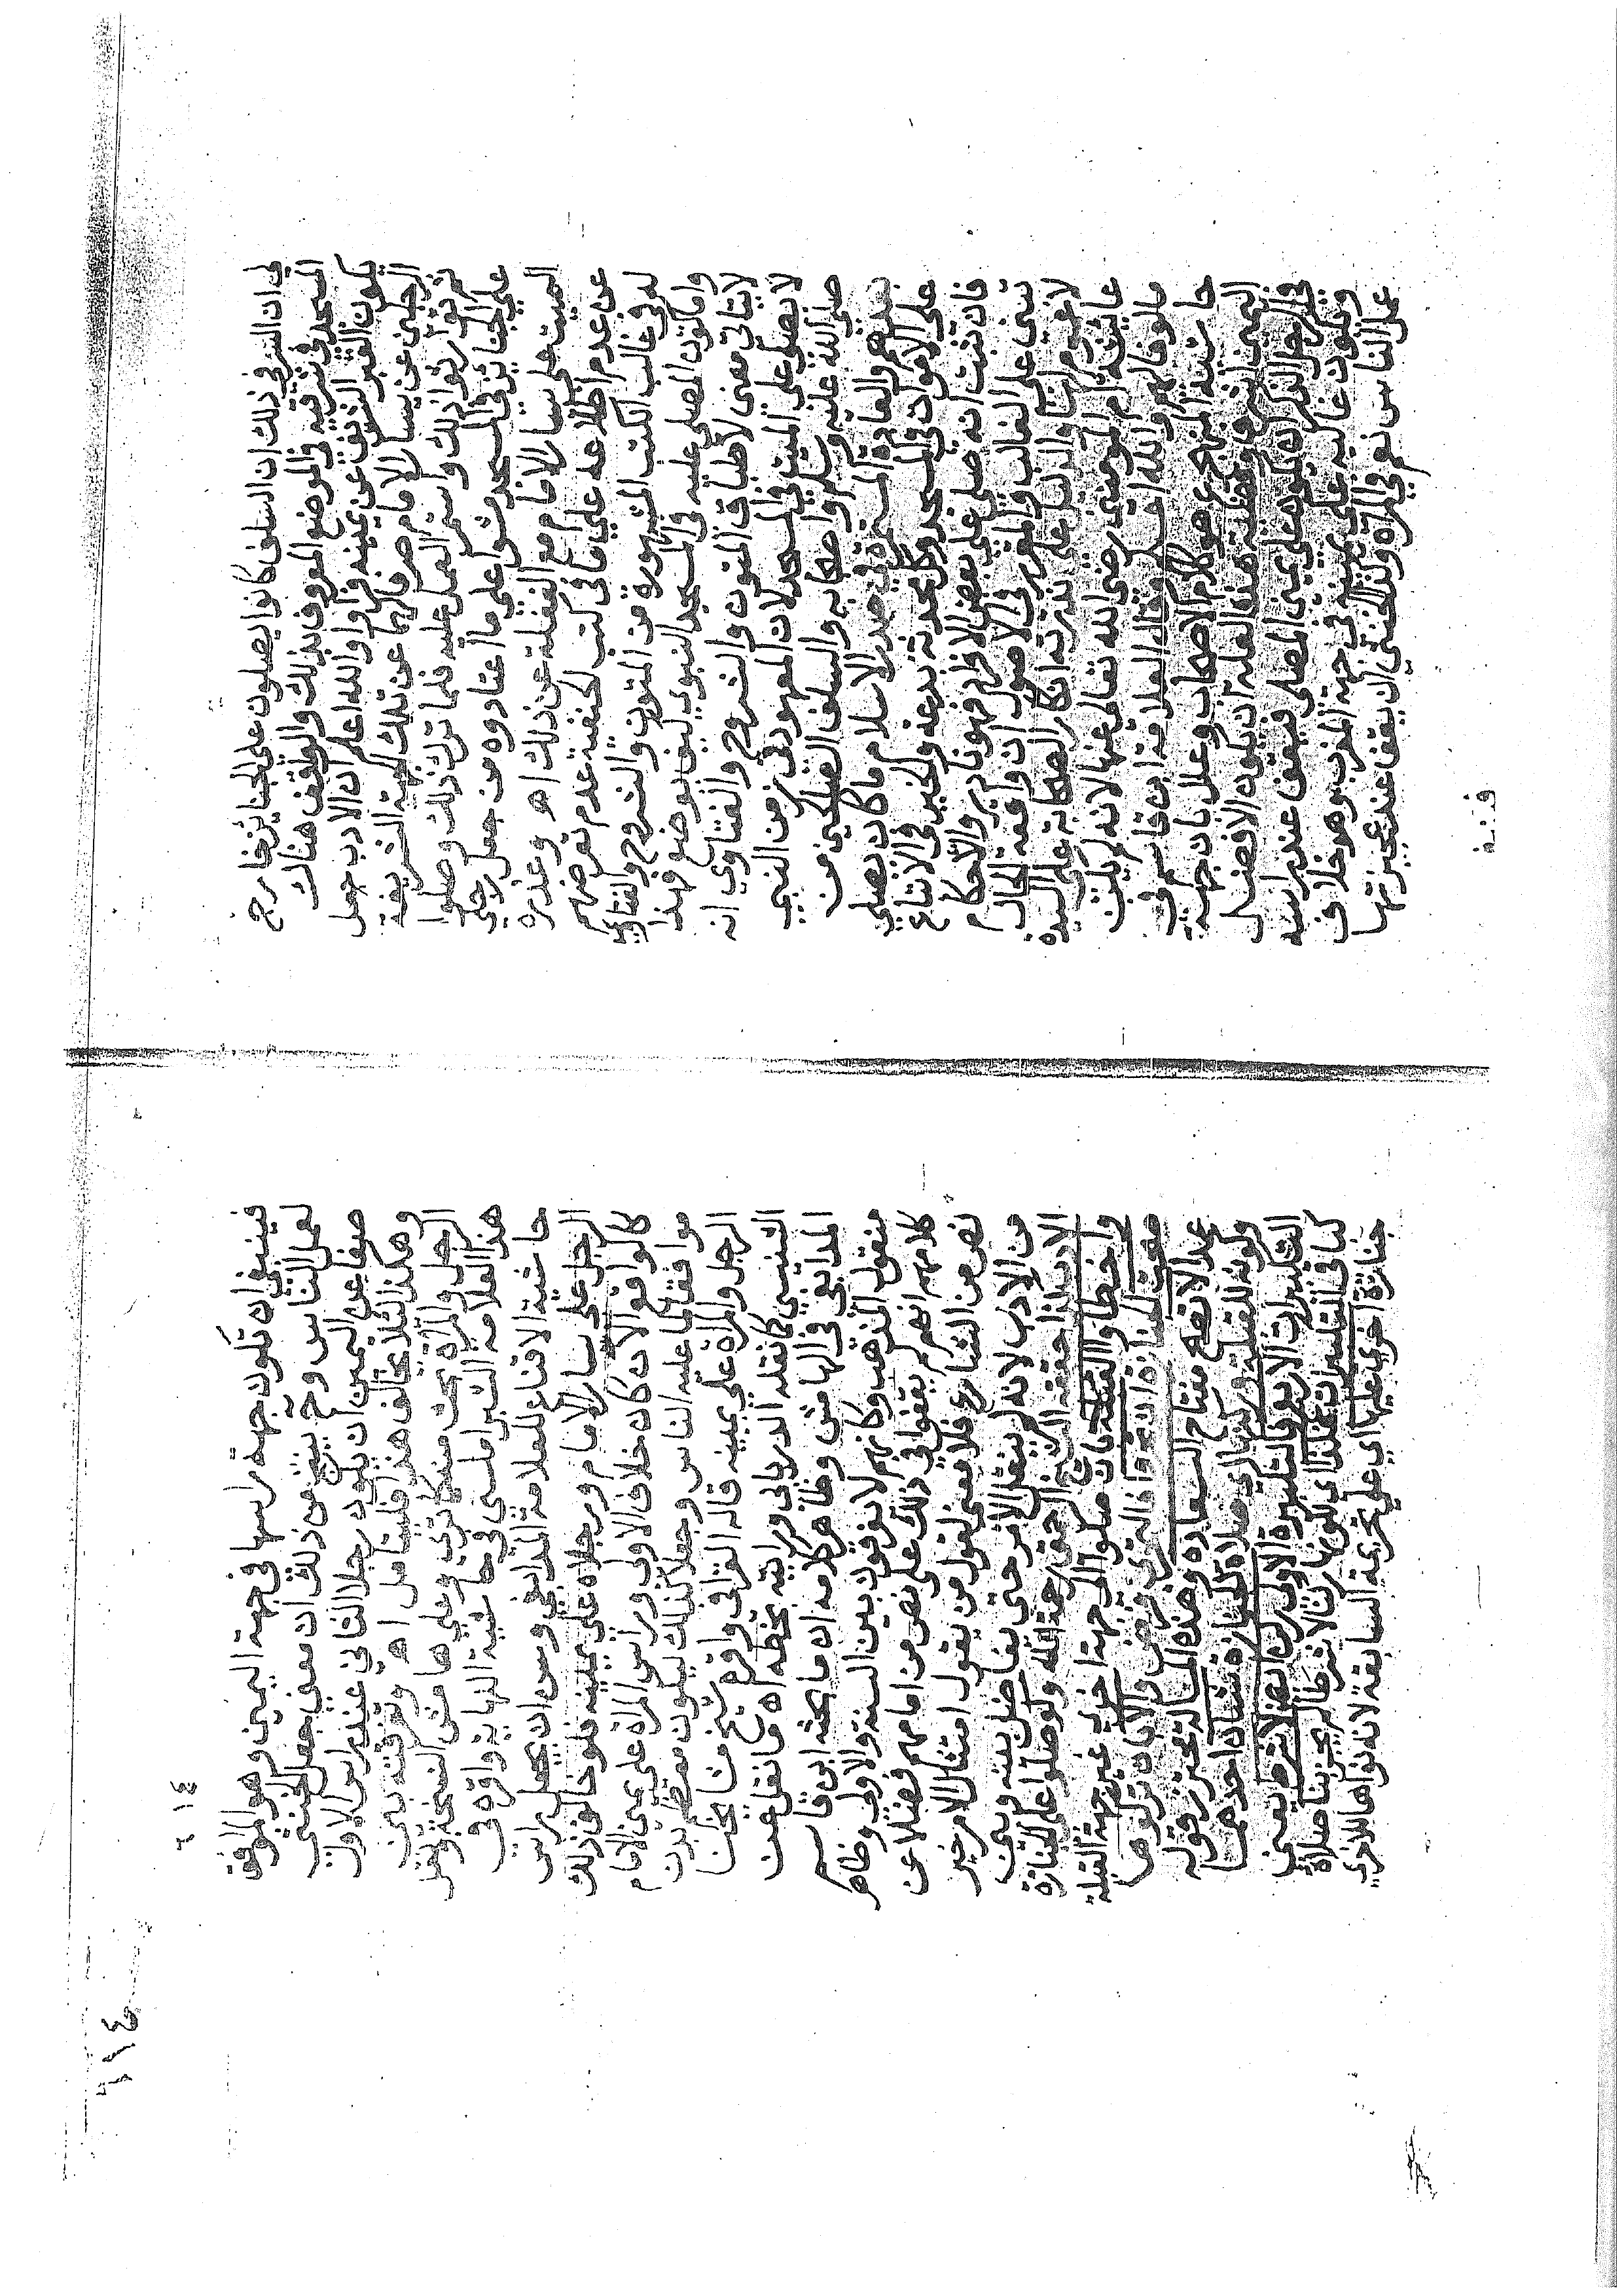 في ان السر في ذلك ان السلف كانوا يصلون على الجنايز خارج
المسجد في شرقيه في الموضع المعروف بذلك والواقف هناك
يكون القبر الشريف عن يمينه فراوا والله اعلم ان الادب جعل
الرجلين عن يسار الامام صرفا لهما عن تلك الجهة الشريفة
ثم توارثوا ذلك واستمر العمل عليه فلما ترك ذلك وصلوا
على الجنايز في المسجد مشوا على ما اعتادوه من جعل رجلي
الميت على يسار الامام مع الغفلة عن ذلك اه وعذره
عن عدم اطلاعه على ما في كتب الحنفية عدم تعرضهم
له في غالب الكتب المشهورة من المتون والشروح والفتاوي
واما كون المصلى عليه في المسجد النبوي ليس بوضع فهذا
لا يتاتى معنى لاطباق المتون والشروح والفتاوي انه
لا يصلى على الميت في المسجد لان المعهود في زمن النبي
صلى الله عليه وسلم واصحابه والسلف الصالحين من
بعدهم والعادة المستمرة في صدر الاسلام ما كان يصلي
على الاموات في المسجد وكل محدثة بدعة والخير في الاتباع
فان ثبت انه صلى على بعض الافراد فهو نادر والاحكام
تبنى على الغالب والمقرر في الاصول ان واقعة الحال
لا عموم لها والدليل على ندرته انكار الصحابة على السيدة
عايشة ام المومنين رضي الله تعالى عنها لانه لم يكن
مالوفا لهم والله اعلم وقال العلامة ابن قاسم في
حاشية المنهج هو كلام الاصحاب وعلل بان جهة
اليمين اشرف وقضية هذه العلة ان يكون الافضل
في الرجل الذكر ان يكون على يمين المصلي فيقف عند راسه
وتكون غالبه على يمينه في جهة المغرب وهو خلاف
عمل الناس نعم في المراة والخنثى ان يقف عند عجيزتها
فينبغي ان تكون جهة راسها في جهة اليمين وهو الموافق
لعمل الناس وح ينتج من ذلك ان معنى جعل الخنثيين
صفا عن اليمين ان يكون رجلا الثاني عند راس الاول
وهكذا لئلا يخالف هذا فليتامل اه وتفرقته بين
الرجل والمراة بحث منه كما ترى وعلى هامش النسخة بخط
هذا العلامة الشبراملسي في حاشية النهاية واقره في
حاشية الاقناع للعلامة المدابغي وسن ان يجعل راس
الرجل على يسار الامام ورجلاه على يمينه فلو خالف ذلك
كما لو وقع الان كان خلاف الاولى وراس المراة على يمين الامام
موافقة لما عليه الناس وجعلا كذلك ليكون معظم بدن
الرجل والمراة على يمينه قاله العزاقي واقره شيخ مشايخنا
الشنيسي كما نقله الدريابي ورايته بخطه اه ما نقل عن
المدابغي في الهامش وظاهر كلامه ان ما بحثه ابن قاسم
منقول المذهب وكانهم لا يفرقون بين السنة والاولى وظاهر
كلامهم انهم لم يقفوا في ذلك على نص من امامهم فضلا عن
نص من الشارع فلا معنى لقول من يقول امتثال الامر خير
من الادب لانه لم ينقل الامر حتى يفاضل بينه وبين
الادب اذا حققه الشيخ الرحمتي رحمة الله ولو صلوا على الجنازة
واخطاوا القبلة بان صلوا الى جهة اخرى غير جهة القبلة
صحت الجنازة ان تحروا اذ التحري فرض والا بان تركوها
عمدا لا تصح مفتاح السعادة وهذه المسالة تحير قوله
وكونه للقبلة وكبر في صلاة الجنازة شيئان احدهما
التكبيرات الاربع فالتكبيرة الاولى ركن ايضا لا شرط يعني
كباقي التكبيرات فلذا اي لكونها ركنا لا شرطا لم يجز بنا صلاة
جنازة اخرى عليها اي على تحريمة السابقة لانه نواها للاخرى
٦١٤